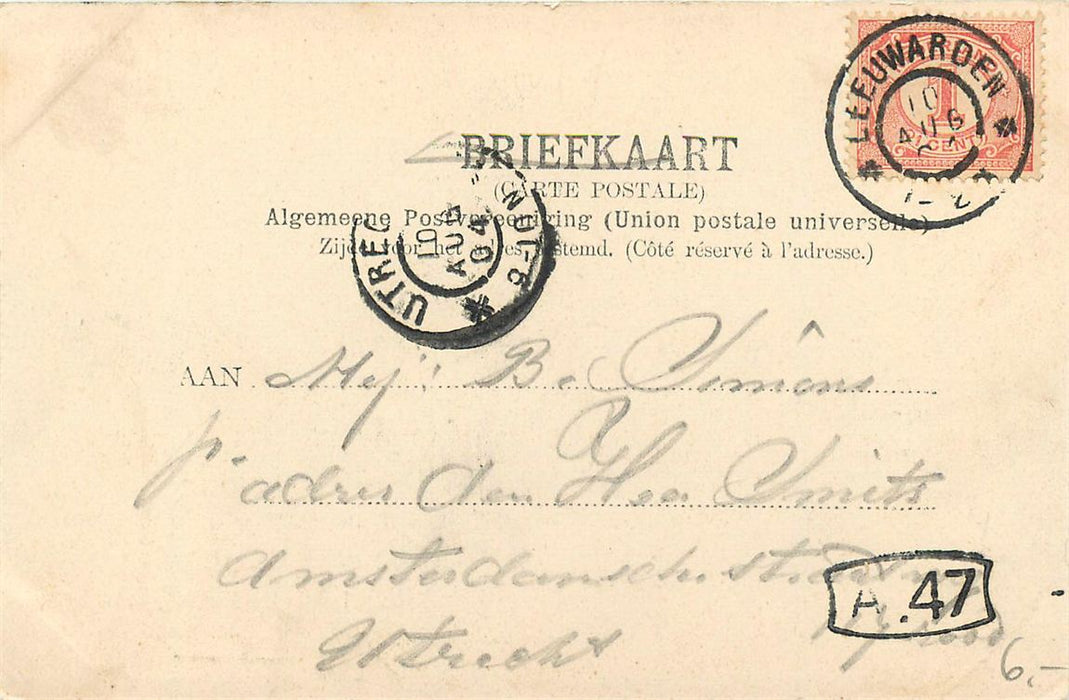 LEEUWARDEN
10
AUG
04
1 CENT
BRIEFKAART
(CARTE POSTALE)
Algemeene Postvereeniging (Union postale universelle)
Zijde voor het adres bestemd. (Côté réservé à l'adresse.)
UTREC N 5-10
10
AUG
04
AAN Mej: B. Simons
p. adres den Heer Smits
Amsterdamsche
A. 47
Utrecht
6.-